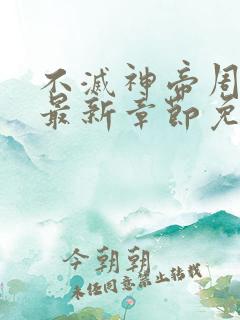 不滅神帝周
最新章節免
今朝朝
未经同意禁止转载